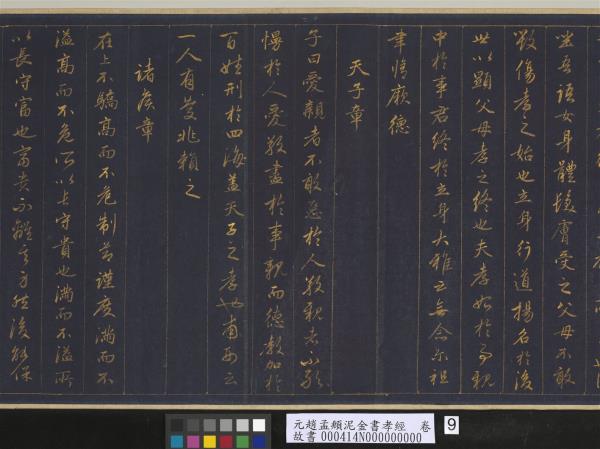 坐吾語女身體髮膚受之父母不敢
毀傷孝之始也立身行道揚名於後
世以顯父母孝之終也夫孝始於事親
中於事君終於立身大雅云無念尔祖
聿脩厥德
天子章
子曰愛親者不敢惡於人敬親者不敢
慢於人愛敬盡於事親而德教加於
百姓刑於四海蓋天子之孝也甫刑云
一人有慶兆民賴之
諸侯章
在上不驕高而不危制節謹度滿而不
溢高而不危所以長守貴也滿而不溢所
以長守富也富貴不離其身然後能保
元趙孟頫泥金書孝經 卷
故書 000414N000000000
9